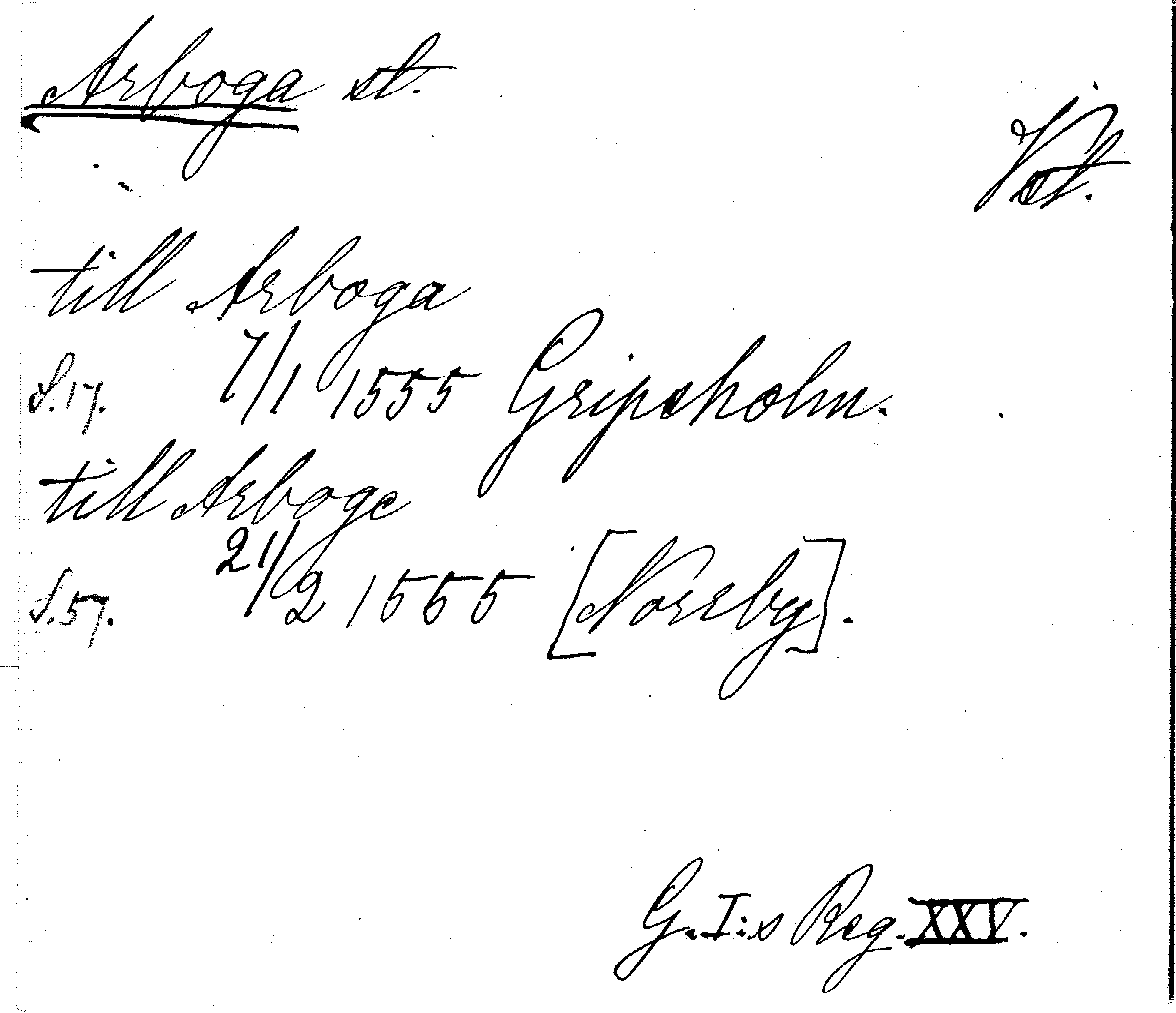 Arboga st.
Vst.
till Arboga
S.17. 7/1 1555 Gripsholm.
till Arboge
S.57. 21/2 1555 [Norrby].
G.I:s Reg. XXV.